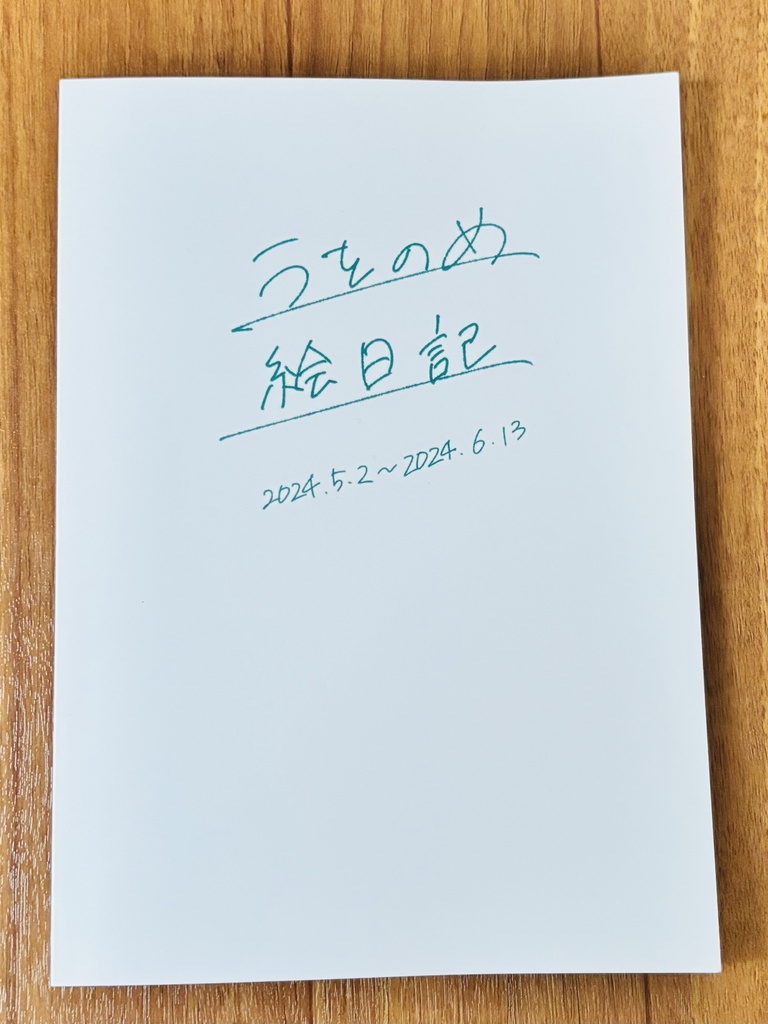 うをのめ
絵日記
2024.5.2〜2024.6.13